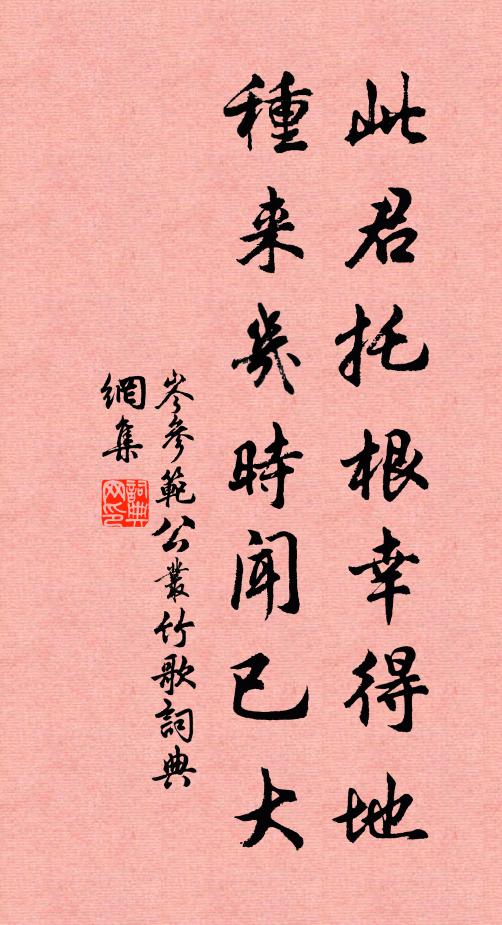 此君托根幸得地
種来幾時聞已大
岑參範公叢竹歌詞典
網集
詞典
网印